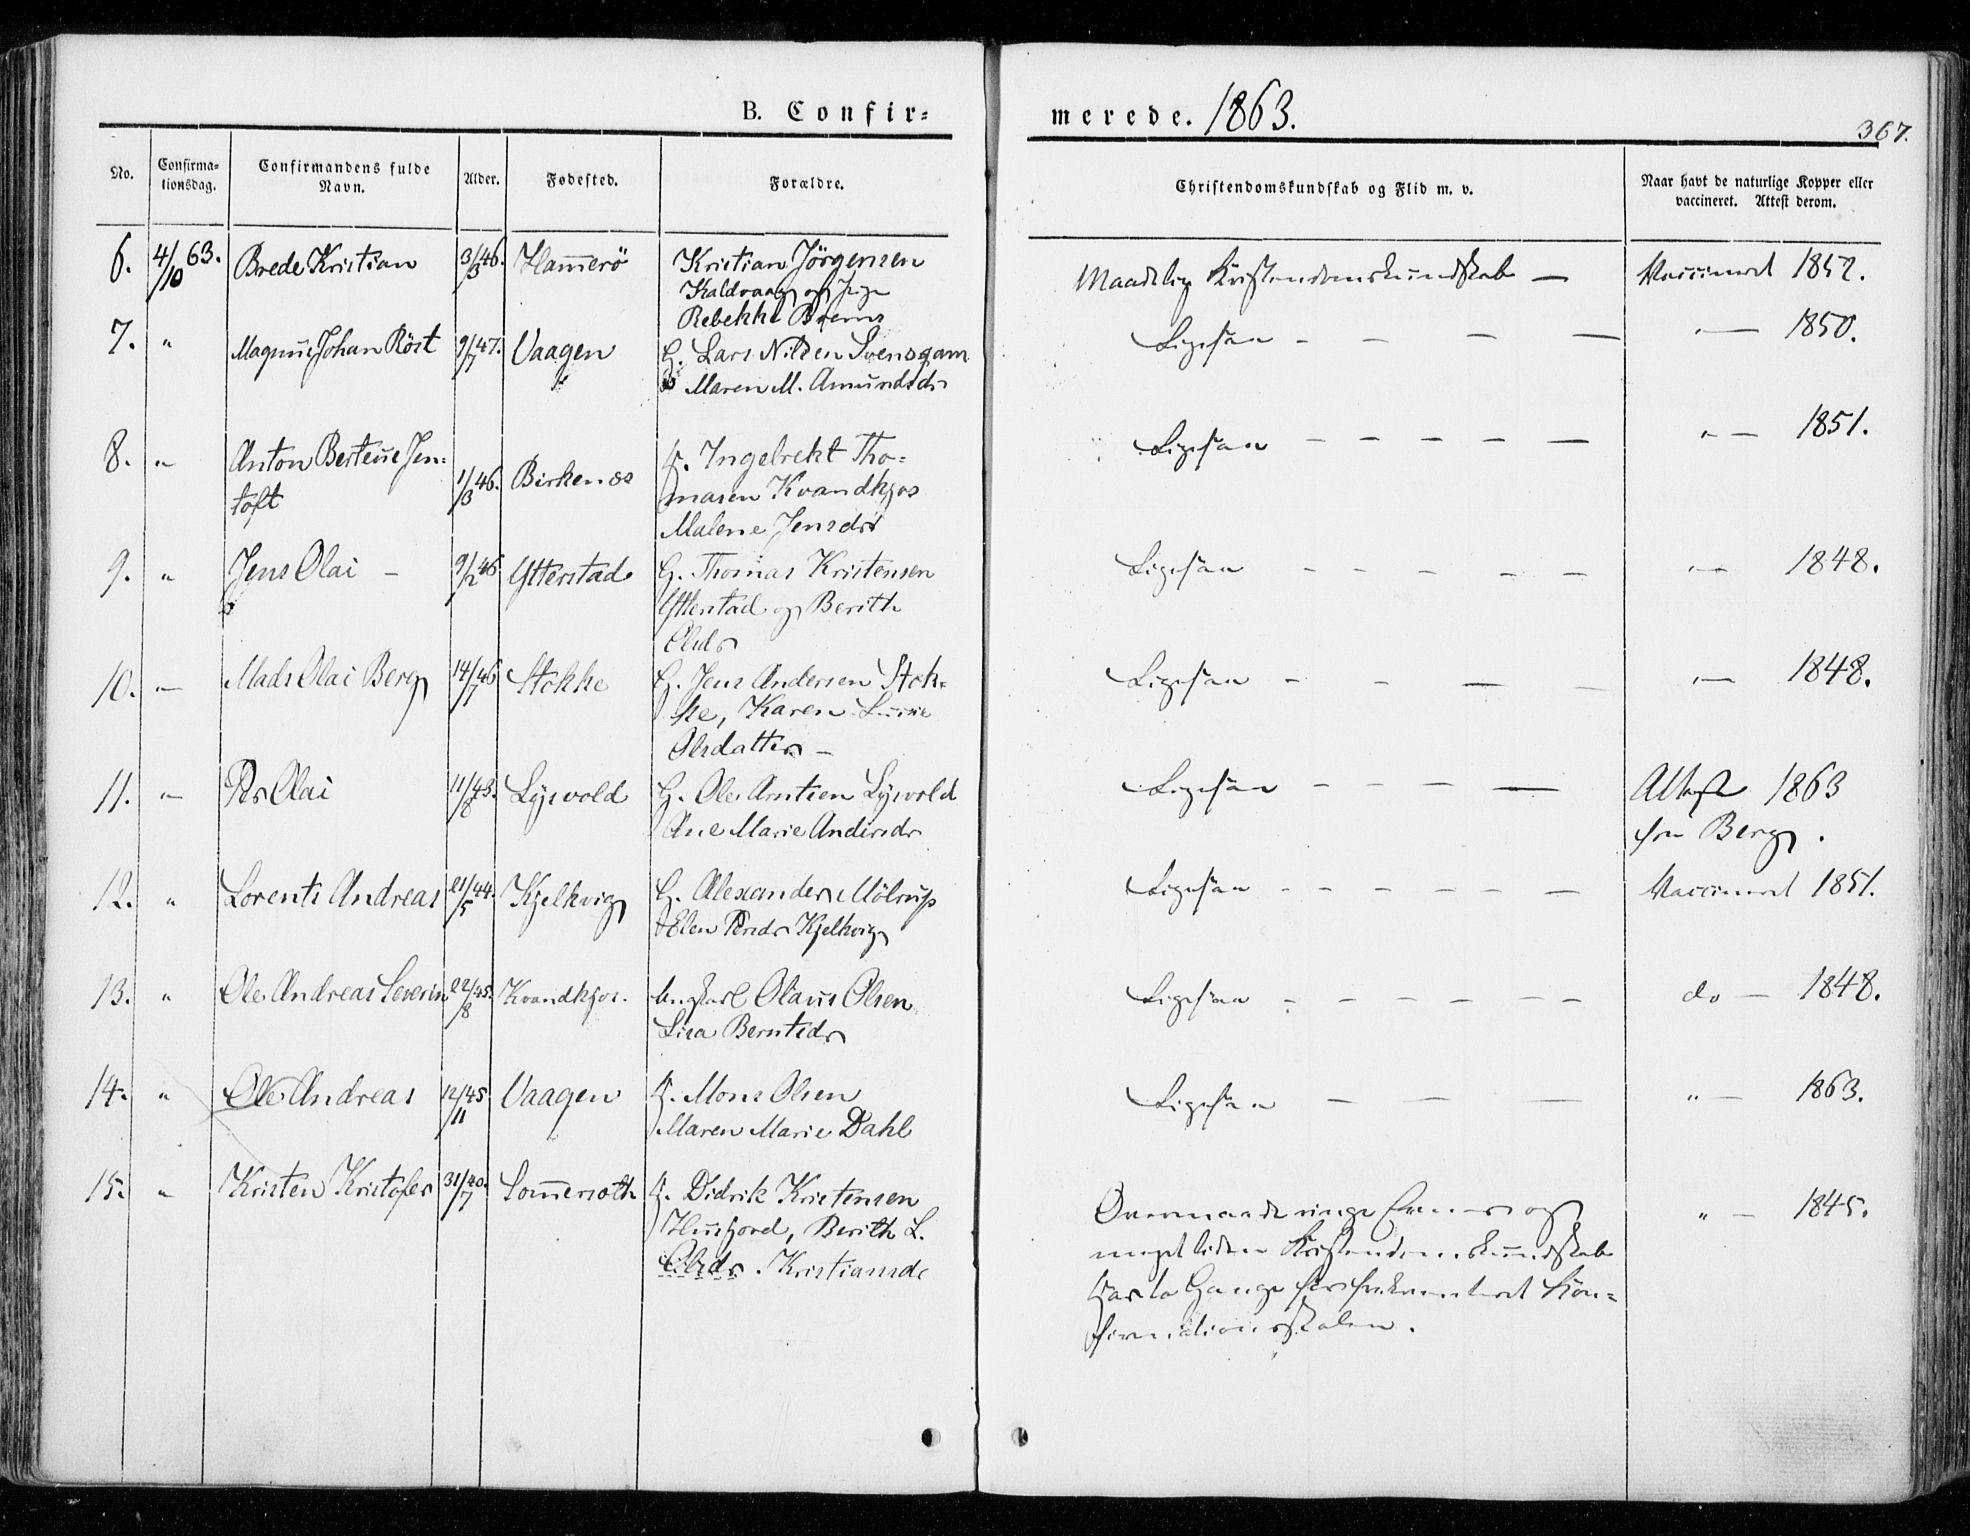 B. Confir=
merede. 1863.
367.
No.
Confirma-
tionsdag.
Confirmandens fulde
Navn.
Alder.
Fødested.
Forældre.
Christendomskundskab og Flid m. v.
Naar havt de naturlige Kopper eller
vaccineret. Attest derom.
6. 4/10 63. Brede Kristian 3/3 46. Ham̅erö Kristian Jörgensen
Kaldvaag og
Rebekka
Maadelig Kristendomskundskab — Vaccineret 1852.
7. " Magnus Johan Röst 9/7 47. Vaagen G. Lars Nilsen Svensgam
Maren M. Amundsdr
Ligesaa - - — — " — 1850.
8. " Anton Berteus Jen=
toft 1/3 46. Birkenæs
F. Ingebrekt Tho=
masen Kvandkjos
Malene Jensdr
Ligesaa - - — — — " — 1851.
9. " Jens Olai — 9/2 46 Ytterstad G. Thomas Kristensen
Ytterstad og Berith
Olsdr
Ligesaa - - - - - " — 1848.
10. — Mads Olai Berg 14/7 46 Stokke G. Jens Andersen Stok-
ke, Karen
Olsdatter —
Ligesaa - - — — " — 1848.
11. " Per Olai 11/8 43. Lysvold G. Ole Arntsen Lysvold
Ane Marie Andersdr
Ligesaa - - - — Attest 1863
fra Berg.
12. " Lorents Andreas 21/5 44. Kjelkvig G. Alexander Mölrup
Elen Persdr Kjelkvig
Ligesaa - - - - - — Vaccineret 1851.
13. " Ole Andreas Severin 22/8 45. Kvandkjos. Ungkarl Olaus Olsen
Lisa Berntsdr
Ligesaa - - - - - - do — 1848.
14. " Ole Andreas 12/11 45 Vaagen F. Mons Olsen
Maren Marie Dahl
Ligesaa — — — " — 1863.
15. " Kristen Kristofer 31/7 40. Som̅ersæth F. Didrik Kristensen
Husfjord, Berith L.
Olsdr. Kristiansdr
Overmaade ringe Evner og
meget liden Kristendomskundskab
Har to Gange før frekventeret Kon=
firmationsskolen.
" — 1845.